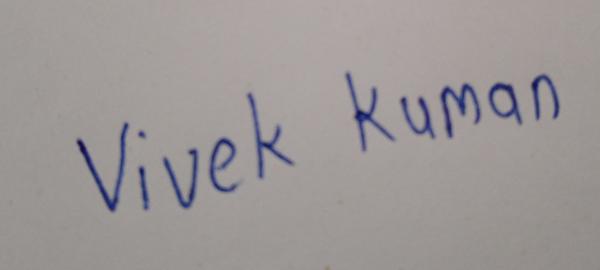 Vivek Kuman